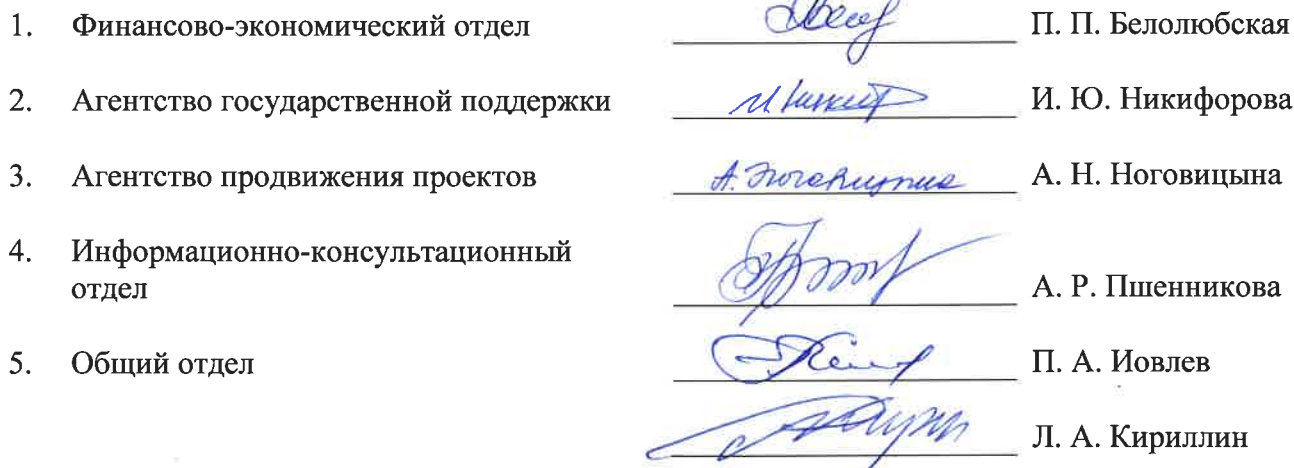 1. Финансово-экономический отдел П. П. Белолюбская
2. Агентство государственной поддержки И. Ю. Никифорова
3. Агентство продвижения проектов А. Ноговицына А. Н. Ноговицына
4. Информационно-консультационный
отдел А. Р. Пшенникова
5. Общий отдел П. А. Иовлев
Л. А. Кириллин